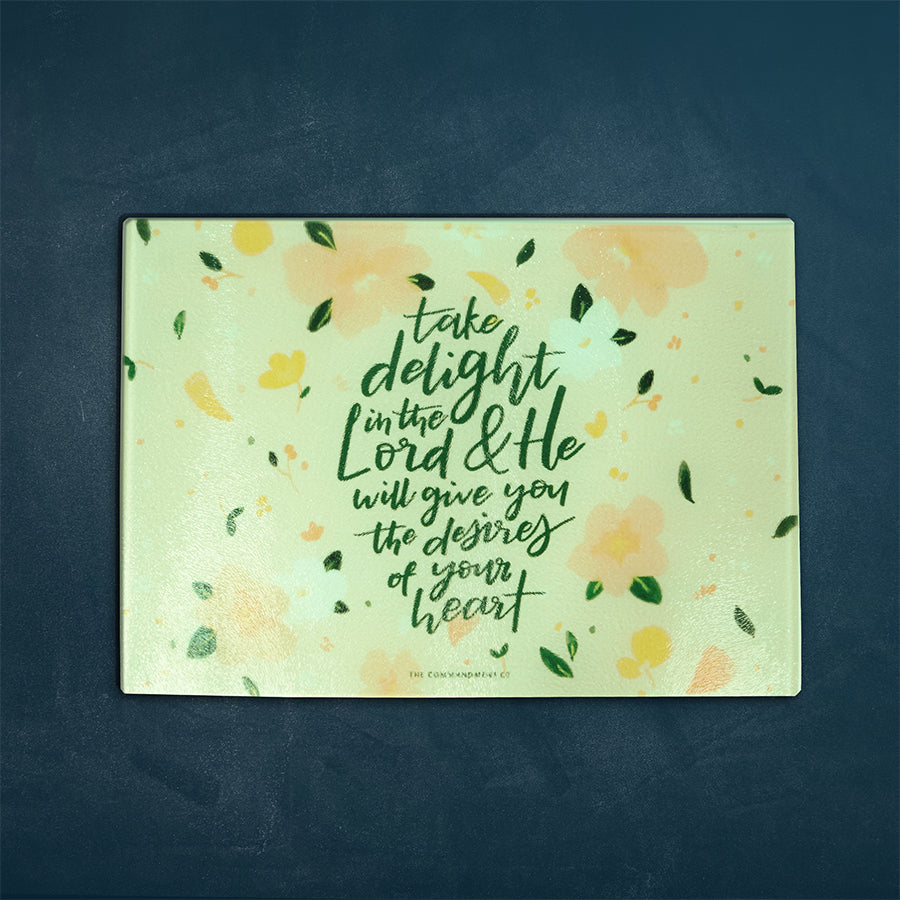 take
delight
in the
Lord & He
will give you
the desires
of your
heart
THE COMMANDMENT CO